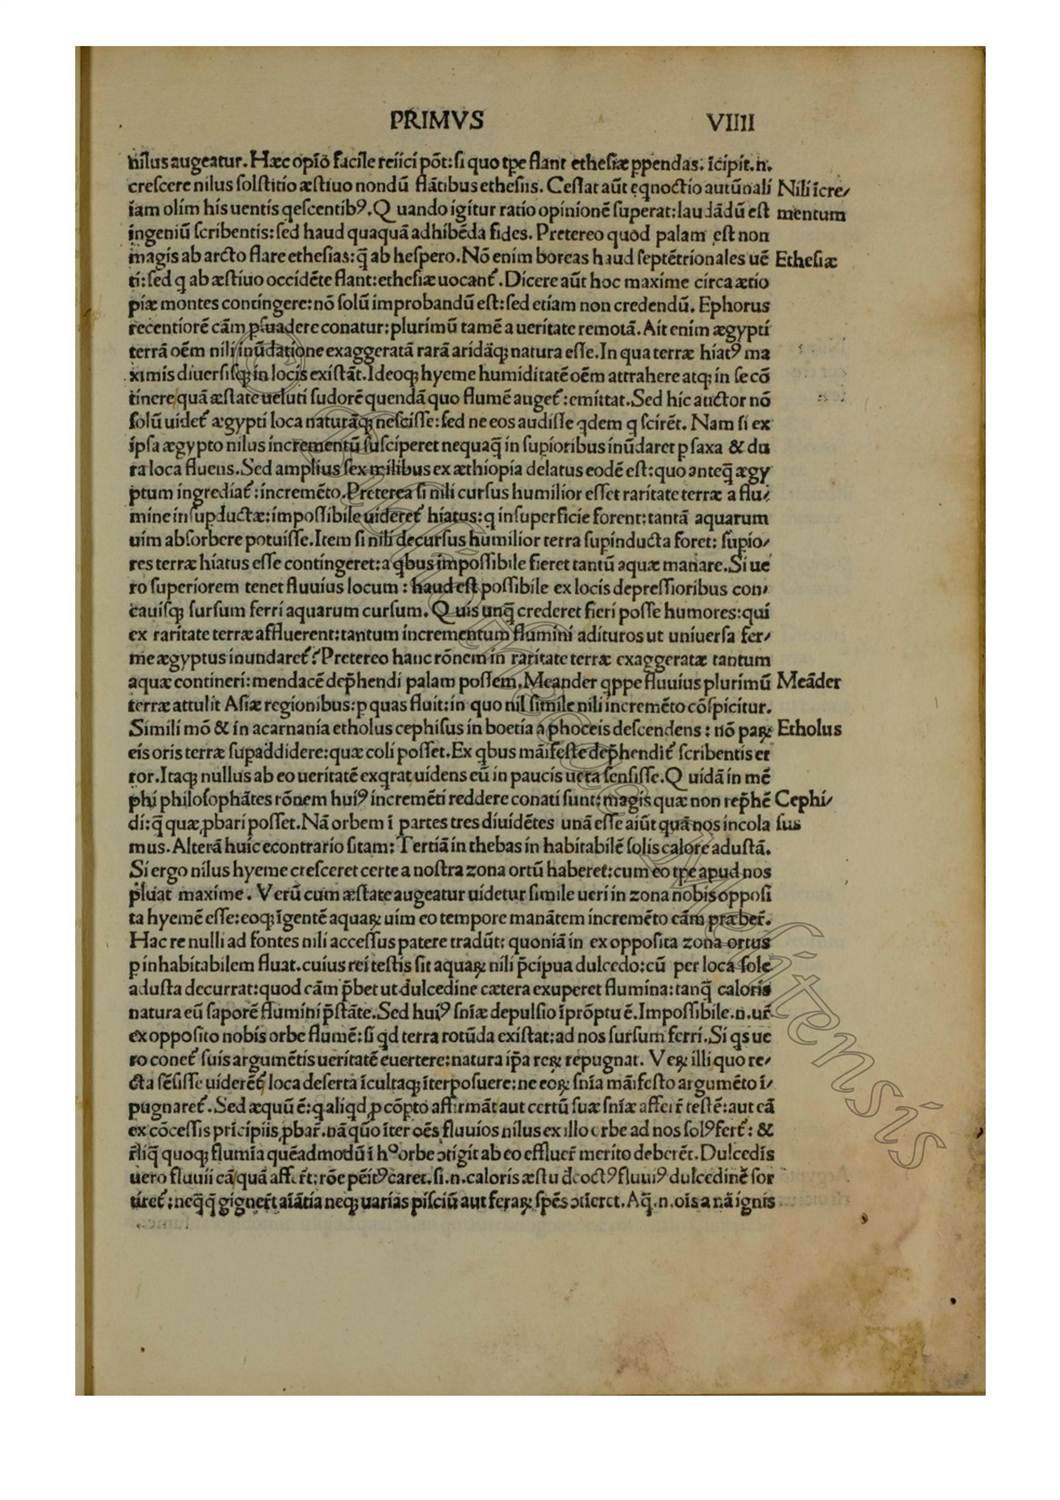 PRIMVS VIIII
nilus augeatur. Hæc opiō facile reiici põt: si quo tp̄e flant ethesiæ ppendas. īcipit .n.
crescere nilus solstitio æstiuo nondū flātibus ethesiis. Cessat aūt eqnoctio autūnali
iam olim his uentis qescentibꝰ. Quando igitur ratio opinionē superat: laudādū est
ingeniū scribentis: sed haud quaquā adhibēda fides. Pretereo quod palam est non
magis ab arcto flare ethesias: q̄ ab hespero. Nō enim boreas haud septētrionales uē
ti: sed q ab æstiuo occidēte flant: ethesiæ uocant᷑. Dicere aūt hoc maxime circa ætio
piæ montes contingere: nō solū improbandū est: sed etiam non credendū. Ephorus
recentiorē cām psuadere conatur: plurimū tamē a ueritate remotā. Ait enim ægypti
terrā oēm nili inūdatione exaggeratā rarā aridāqꝫ natura esse. In qua terræ hiatꝰ ma
ximis diuersisqꝫ in locis existāt. Ideoqꝫ hyeme humiditatē oēm attrahere atqꝫ in se cō
tinere quā æstate ueluti sudorē quendā quo flumē auget᷑: emittat. Sed hic auctor nō
solū uidet᷑ ægypti loca naturāqꝫ nescisse: sed ne eos audisse qdem q scirēt. Nam si ex
ipsa ægypto nilus incrementū susciperet nequaq̄ in supioribus inūdaret p saxa & du
ra loca fluens. Sed amplius sex milibus ex æthiopia delatus eodē est: quo anteq̄ ægy
ptum ingrediat᷑: incremēto. Preterea si nili cursus humilior esset raritate terræ a flu⸗
mine insupductæ: impossibile uideret᷑ hiatus: q insuperficie forent: tantā aquarum
uim absorbere potuisse. Item si nili decursus humilior terra supinducta foret: supio⸗
res terræ hiatus esse contingeret: a qbus impossibile fieret tantū aquæ manare. Si ue
ro superiorem tenet fluuius locum: haud est possibile ex locis depressioribus con⸗
cauisqꝫ sursum ferri aquarum cursum. Quis unq̄ crederet fieri posse humores: qui
ex raritate terræ affluerent: tantum incrementum flumini adituros ut uniuersa fer⸗
me ægyptus inundaret᷑? Pretereo hanc rōnem in raritate terræ exaggeratæ tantum
aquæ contineri: mendacē dep̄hendi palam possem. Meander qppe fluuius plurimū
terræ attulit Asiæ regionibus: p quas fluit: in quo nil simile nili incremēto cōspicitur.
Simili mō & in acarnania etholus cephisus in boetia a phoceis descendens: nō paꝝ
eis oris terræ supaddidere: quæ coli posset. Ex qbus māifeste dep̄hendit᷑ scribentis er
ror. Itaqꝫ nullus ab eo ueritatē exqrat uidens eū in paucis uera sensisse. Quidā in mē
phi philosophātes rōnem huiꝰ incremēti reddere conati sunt: magis quæ non rep̄hē
di: q̄ quæ pbari posset. Nā orbem ī partes tres diuidētes unā esse aiūt quā nos incola
mus. Alterā huic econtrario sitam: Tertiā in thebas inhabitabilē solis calore adustā.
Si ergo nilus hyeme cresceret certe a nostra zona ortū haberet: cum eo tp̄e apud nos
pluat maxime. Verū cum æstate augeatur uidetur simile ueri in zona nobis opposi
ta hyemē esse: eoqꝫ īgentē aquaꝝ uim eo tempore manātem incremēto cām præber̄.
Hac re nulli ad fontes nili accessus patere tradūt: quoniā in ex opposita zona ortus
p inhabitabilem fluat. cuius rei testis sit aquaꝝ nili p̄cipua dulcedo: cū per loca sole
adusta decurrat: quod cām p̄bet ut dulcedine cætera exuperet flumina: tanq̄ caloris
natura eū saporē flumini p̄stāte. Sed huiꝰ sn̄iæ depulsio īprōptu ē. Impossibile .n. ur̄
ex opposito nobis orbe flumē: si qd terra rotūda existat: ad nos sursum ferri. Si qs ue
ro conet᷑ suis argumētis ueritatē euertere: natura ip̄a reꝝ repugnat. Veꝝ illi quo re⸗
cta sēsisse uiderēt᷑ loca deserta īcultaqꝫ īterposuere: ne eoꝝ sn̄ia māifesto argumēto ī⸗
pugnaret᷑. Sed æquū ē: q aliqd p cōpto affirmāt aut certū suæ sn̄iæ affer̄r testē: aut cā
ex cōcessis pricipiis pbar̄. nā quō īter oēs fluuios nilus ex illo orbe ad nos solꝰ fert᷑: &
rliq̄ quoqꝫ flumīa quēadmodū ī hº orbe ↄtigit ab eo effluer̄ merito deberēt. Dulcedis
uero fluuii cā quā affer̄t: rōe pēitꝰ caret. si .n. caloris æstu decoctꝰ fluuiꝰ dulcedinē sor
tiret᷑: neqꝫ gigner̄t aīātia neqꝫ uarias pisciū aut feraꝝ spēs ↄtīeret. Aq̄ .n. oīs a nā ignis
Nili icre⸗
mentum
Ethesiæ
Meāder
Etholus
Cephi⸗
sus